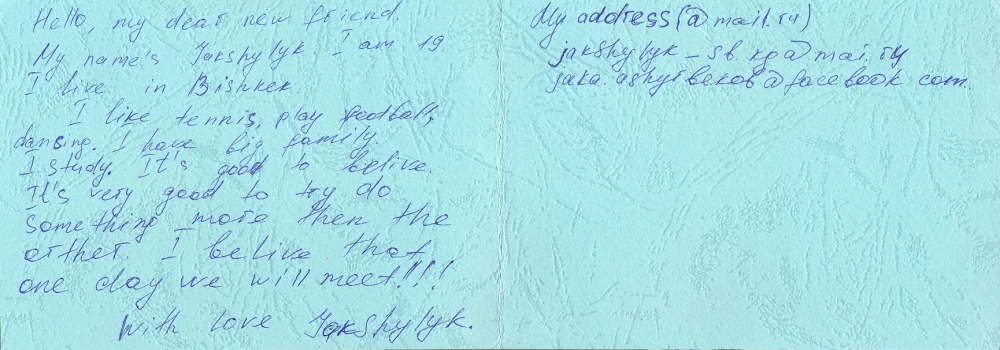 Hello, my dear new friend.
My name's Jakshylyk. I am 19
I live in Bishkek.
I like tennis, play football,
dansing. I have big family.
I study. It's good to belive.
It's very good to try do
Something more then the
orther. I belive that
one day we will meet!!!!
With love Jakshylyk.
My address (@mail.ru)
jakshylyk_sb.kg@mai.ru